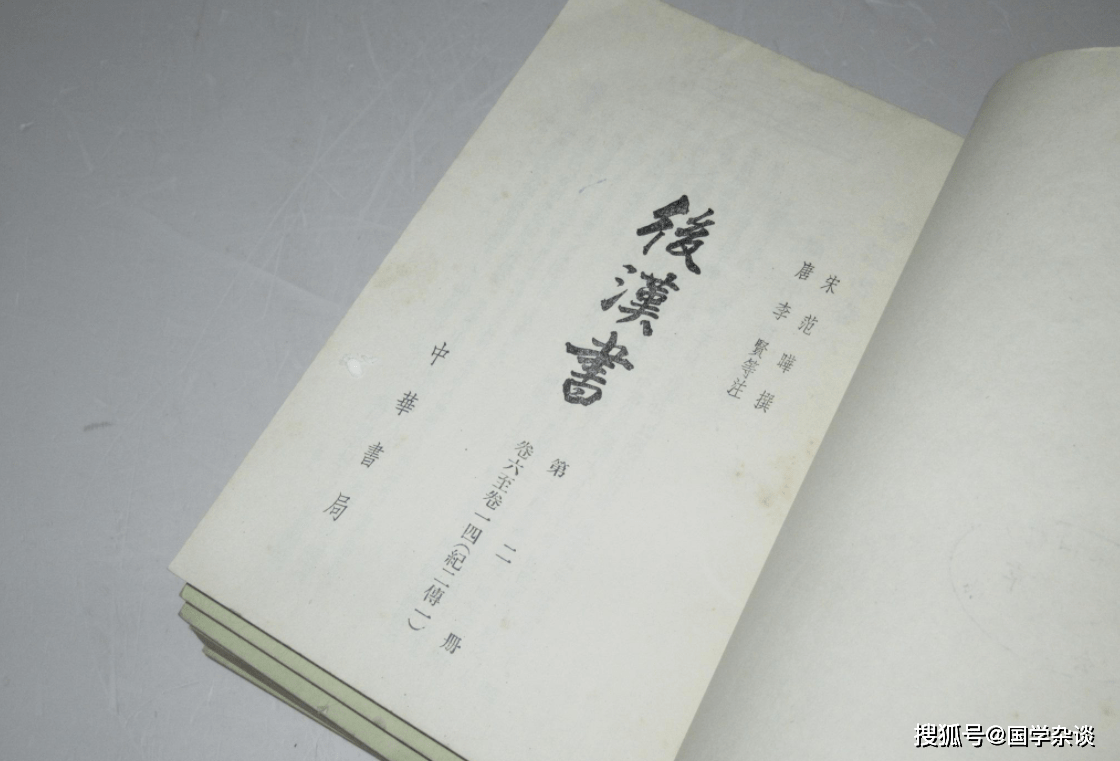 宋范曄撰
唐李賢等注
後漢書
第二册
卷六至卷一四(紀二傳一)
中華書局
搜狐号@国学杂谈